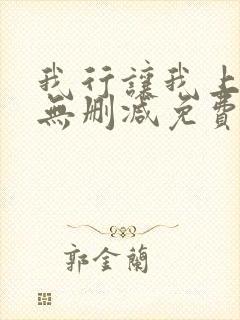 我行讓我上
無刪減免費
郭金蘭